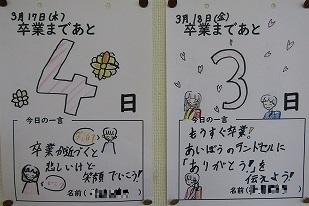 3月17日(木)
卒業まであと
4
日
今日の一言
卒業が近づくと
悲しいけど
笑顔でいこう!
名前(
3月18日(金)
卒業まであと
3
日
今日の一言
もうすぐ卒業!
あいぼうのランドセルに
「ありがとう!」を
伝えよう!
名前(